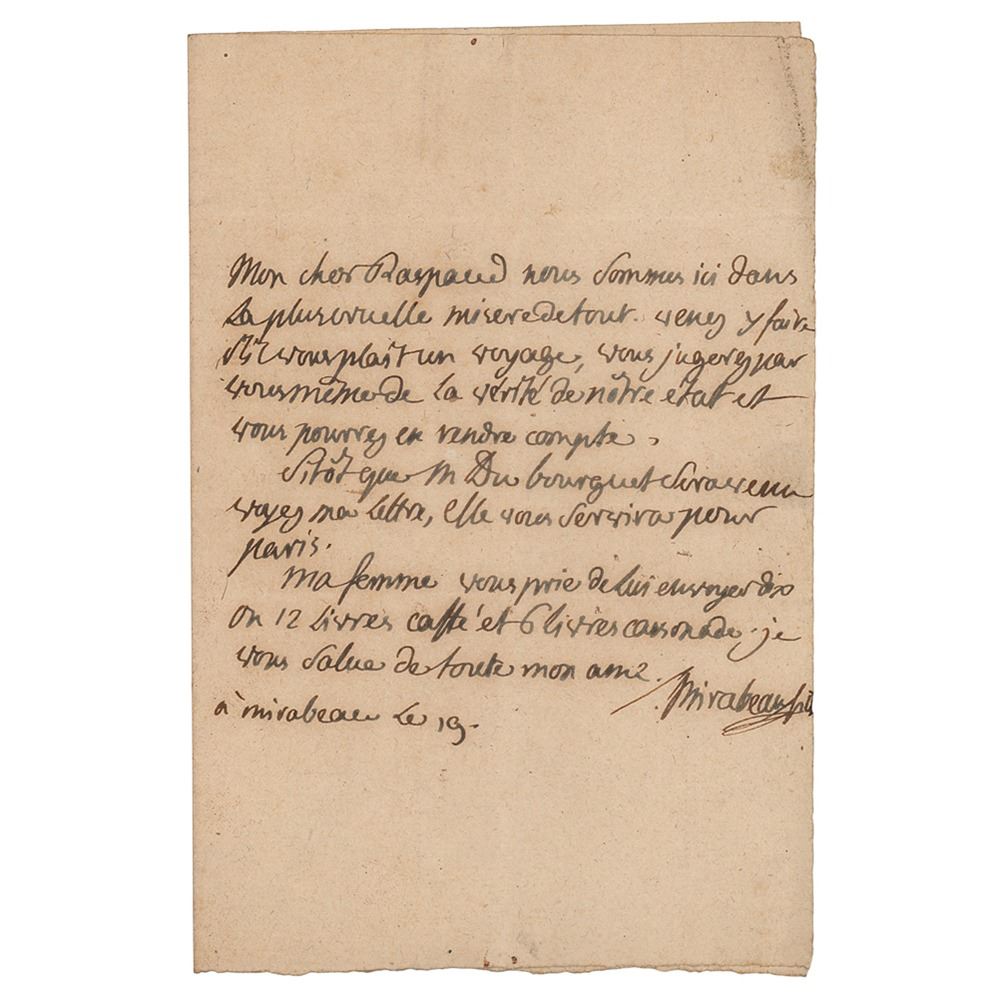 Mon cher Raspaud nous sommes ici dans
la plus cruelle misere de tout. venez y faire
s'il vous plaît un voyage, vous jugerez par
vous même de la vérité de nôtre état et
vous pourrez en rendre compte.
Sitôt que M Du bourguet sera venu
voyez ma lettre, elle vous servira pour
paris.
ma femme vous prie de lui envoyer dix
ou 12 livres caffé et 6 livres cassonade. je
vous salue de toute mon ame.
Mirabeau fils
à mirabeau le 19.